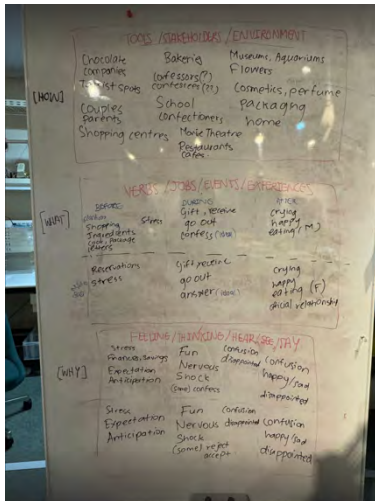 TOOLS / STAKEHOLDERS / ENVIRONMENT
[HOW]
Chocolate companies
Tourist spots
Couples
Parents
Shopping centres
Bakeries
confessors(?)
confessees(??)
School
confectioners
Movie Theatre
Restaurants
cafes
Museums, Aquariums
Flowers
Cosmetics, perfume
packaging
home
VERBS / JOBS / EVENTS / EXPERIENCES
[WHAT]
BEFORE
Shopping
Ingredients
cook, package
Stress
DURING
Gift, receive
go out
confess
crying
happy
eating (M)
Reservations
stress
Gift receive
go out
answer
crying
happy
eating (F)
official relationship
FEELING / THINKING / HEAR / SEE / SAY
[WHY]
Stress
Finances, Savings
Expectation
Anticipation
Fun
Nervous
Shock
(some) confess
confusion
disappointed
confusion
happy/sad
disappointed
Stress
Expectation
Anticipation
Fun
Nervous
Shock
(some) reject
accept
confusion
disappointed
confusion
happy/sad
disappointed